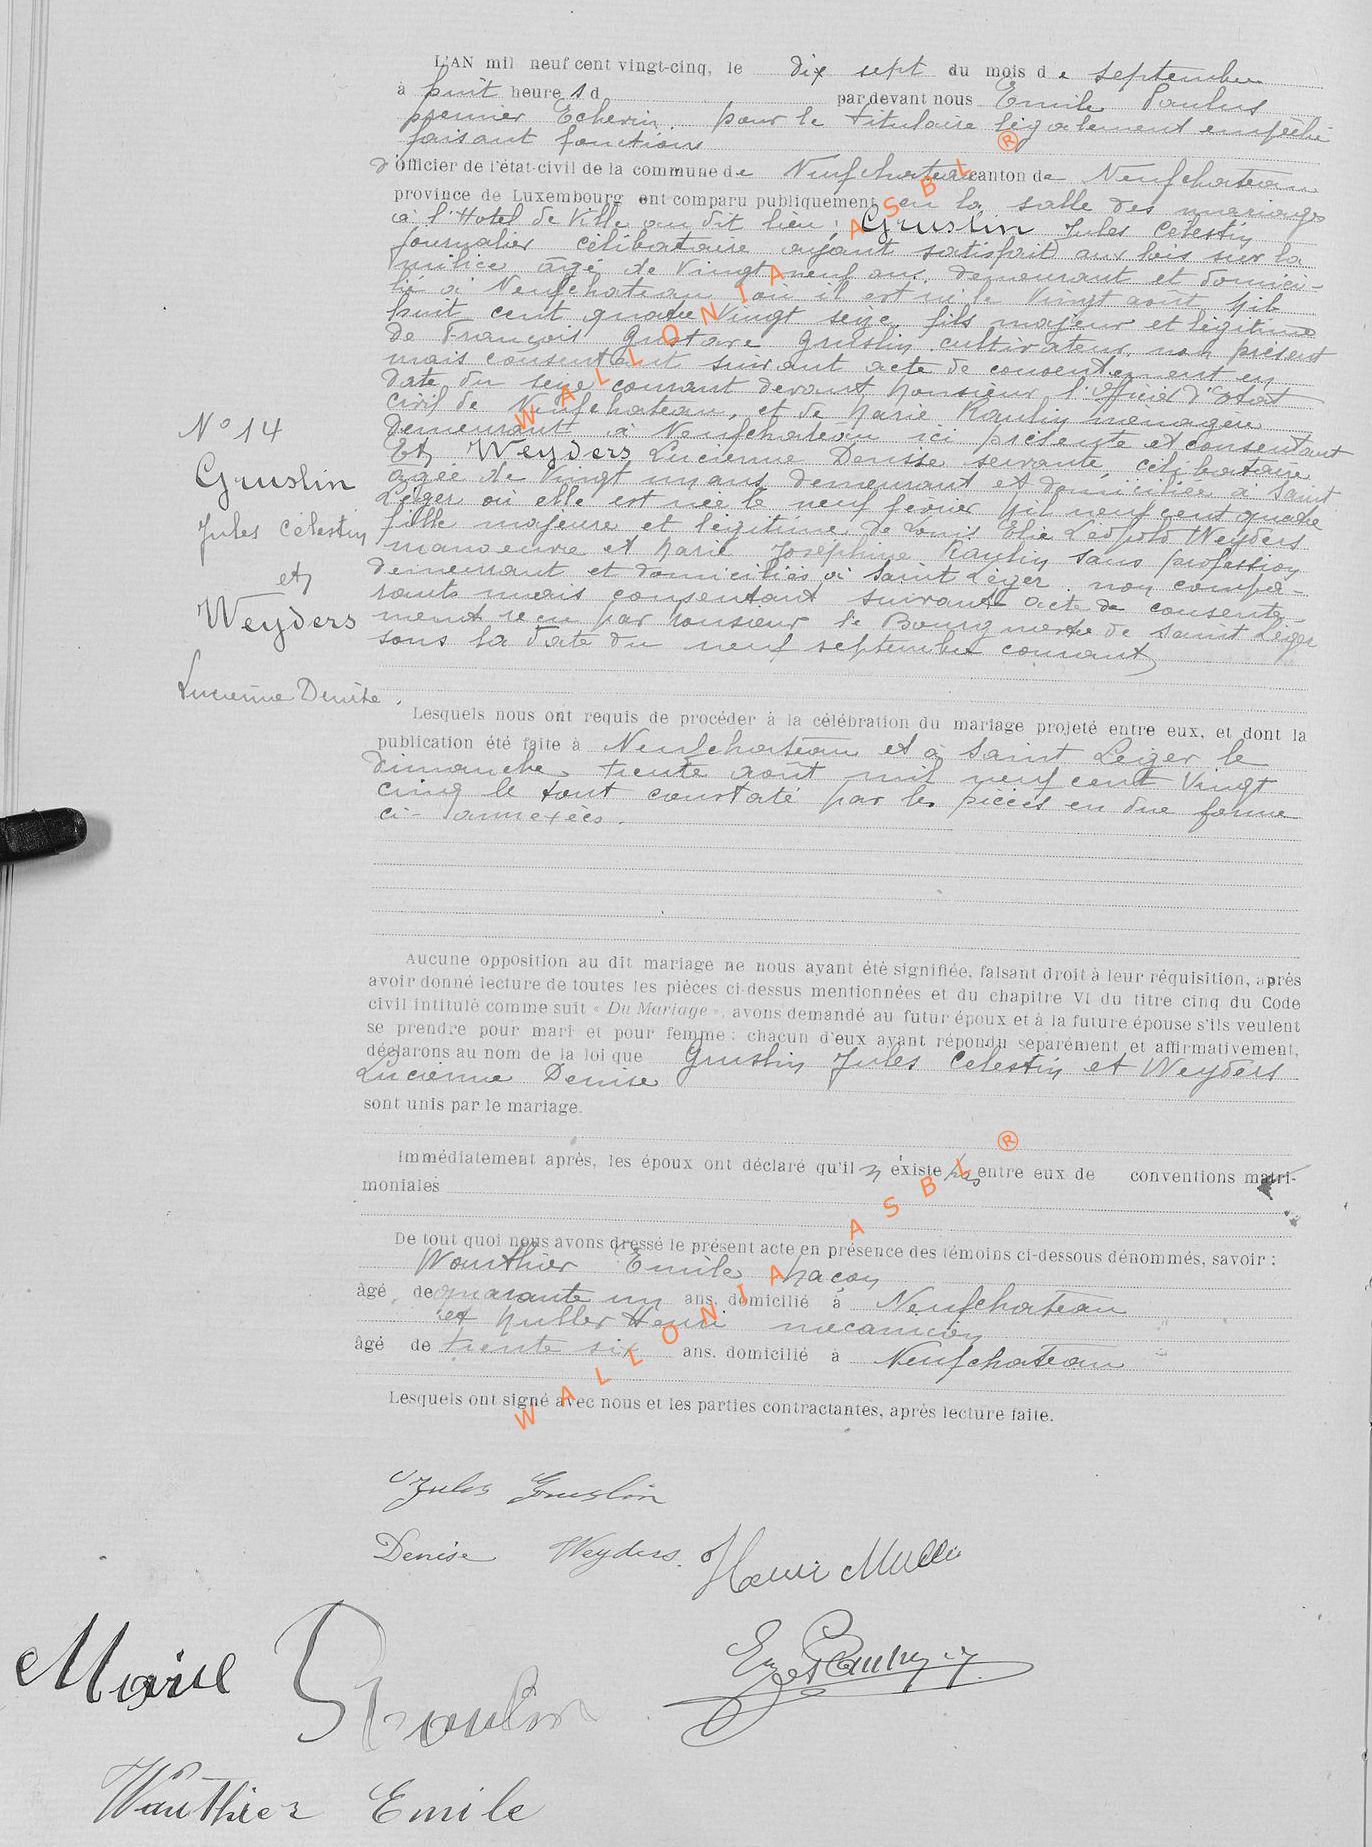 L'AN mil neuf cent vingt-cinq, le dix sept du mois de septembre
à huit heures d par devant nous Emile Paulus
premier Echevin pour le titulaire légalement empêché
faisant fonctions
d'officier de l'état-civil de la commune de Neufchateau canton de Neufchateau
province de Luxembourg ont comparu publiquement en la salle des mariages
à l'Hotel de Ville au dit lieu : Gruslin Jules Célestin
journalier célibataire ayant satisfait aux lois sur la
milice âgé de vingt neuf ans demeurant et domici-
lié à Neufchateau où il est né le vingt aout mil
huit cent quatre vingt seize fils majeur et légitime
de François Gustave Gruslin cultivateur non présent
mais consentant suivant acte de consentement en
date du seize courant devant Monsieur l'Officier d'Etat
civil de Neufchateau, et de Marie Roulin ménagère
demeurant à Neufchateau ici présente et consentant
Et Weyders Lucienne Denise servante, célibataire
âgée de vingt un ans demeurant et domiciliée à Saint
Léger où elle est née le neuf février mil neuf cent quatre
fille majeure et légitime de Louis Elie Léopold Weyders
manoeuvre et Marie Joséphine sans profession
demeurant et domiciliés à Saint Léger non compa-
rants mais consentant suivant acte de consente-
ment reçu par Monsieur le Bourgmestre de Saint Léger
sous la date du neuf septembre courant
N° 14
Gruslin
Jules Célestin
et
Weyders
Lucienne Denise.
Lesquels nous ont requis de procéder à la célébration du mariage projeté entre eux, et dont la
publication été faite à Neufchateau et à Saint Leger le
dimanche trente août mil neuf cent vingt
cinq le tout constaté par les pièces en due forme
ci-annexées.
Aucune opposition au dit mariage ne nous ayant été signifiée, faisant droit à leur réquisition, après
avoir donné lecture de toutes les pièces ci-dessus mentionnées et du chapitre VI du titre cinq du Code
civil intitulé comme suit « Du Mariage », avons demandé au futur époux et à la future épouse s'ils veulent
se prendre pour mari et pour femme : chacun d'eux ayant répondu séparément et affirmativement,
déclarons au nom de la loi que Gruslin Jules Celestin et Weyders
Lucienne Denise
sont unis par le mariage.
Immédiatement après, les époux ont déclaré qu'il n'existe pas entre eux de conventions matri-
moniales
De tout quoi nous avons dressé le présent acte en présence des témoins ci-dessous dénommés, savoir :
Wauthier Emile Maçon
âgé de quarante un ans, domicilié à Neufchateau
et Muller Henri mécanicien
âgé de trente six ans, domicilié à Neufchateau
Lesquels ont signé avec nous et les parties contractantes, après lecture faite.
Jules Gruslin
Denise Weyders. Henri Muller
Marie Roulin
Em Paulus
Wauthier Emile
WALLONIA ASBL ®
WALLONIA ASBL ®